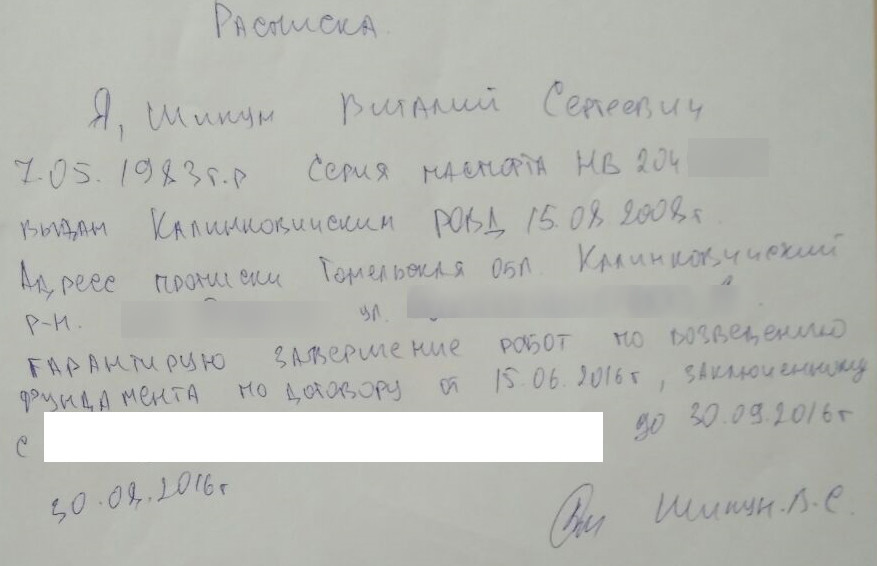 Расписка.
Я, Шикун Виталий Сергеевич
7.05.1983г.р Серия паспорта НВ 204
выдан Калинковичским РОВД 15.08 2008г.
Адресс прописки Гомельская обл. Калинковичский
р-н. ул.
гарантирую завершение работ по возведению
фундамента по договору от 15.06.2016г, заключенному
с до 30.09.2016г
30.08.2016г
Шикун.В.С.